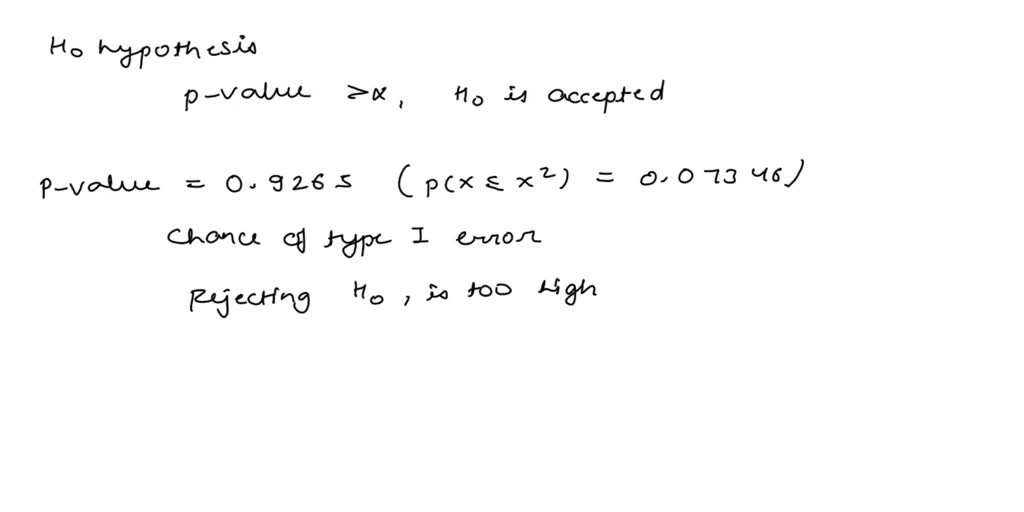 H0 hypothesis
p-value >α, H0 is accepted
p-value = 0.9265 (p(x ≤ x²) = 0.07346)
chance of type I error
Rejecting H0, is too high